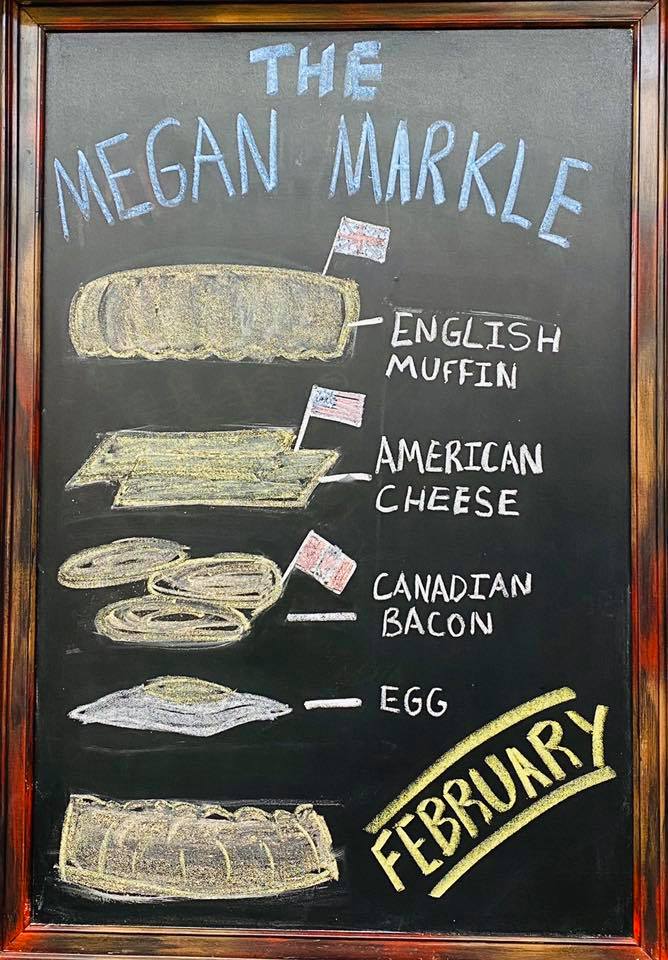 THE
MEGAN MARKLE
ENGLISH
MUFFIN
AMERICAN
CHEESE
CANADIAN
BACON
EGG
FEBRUARY